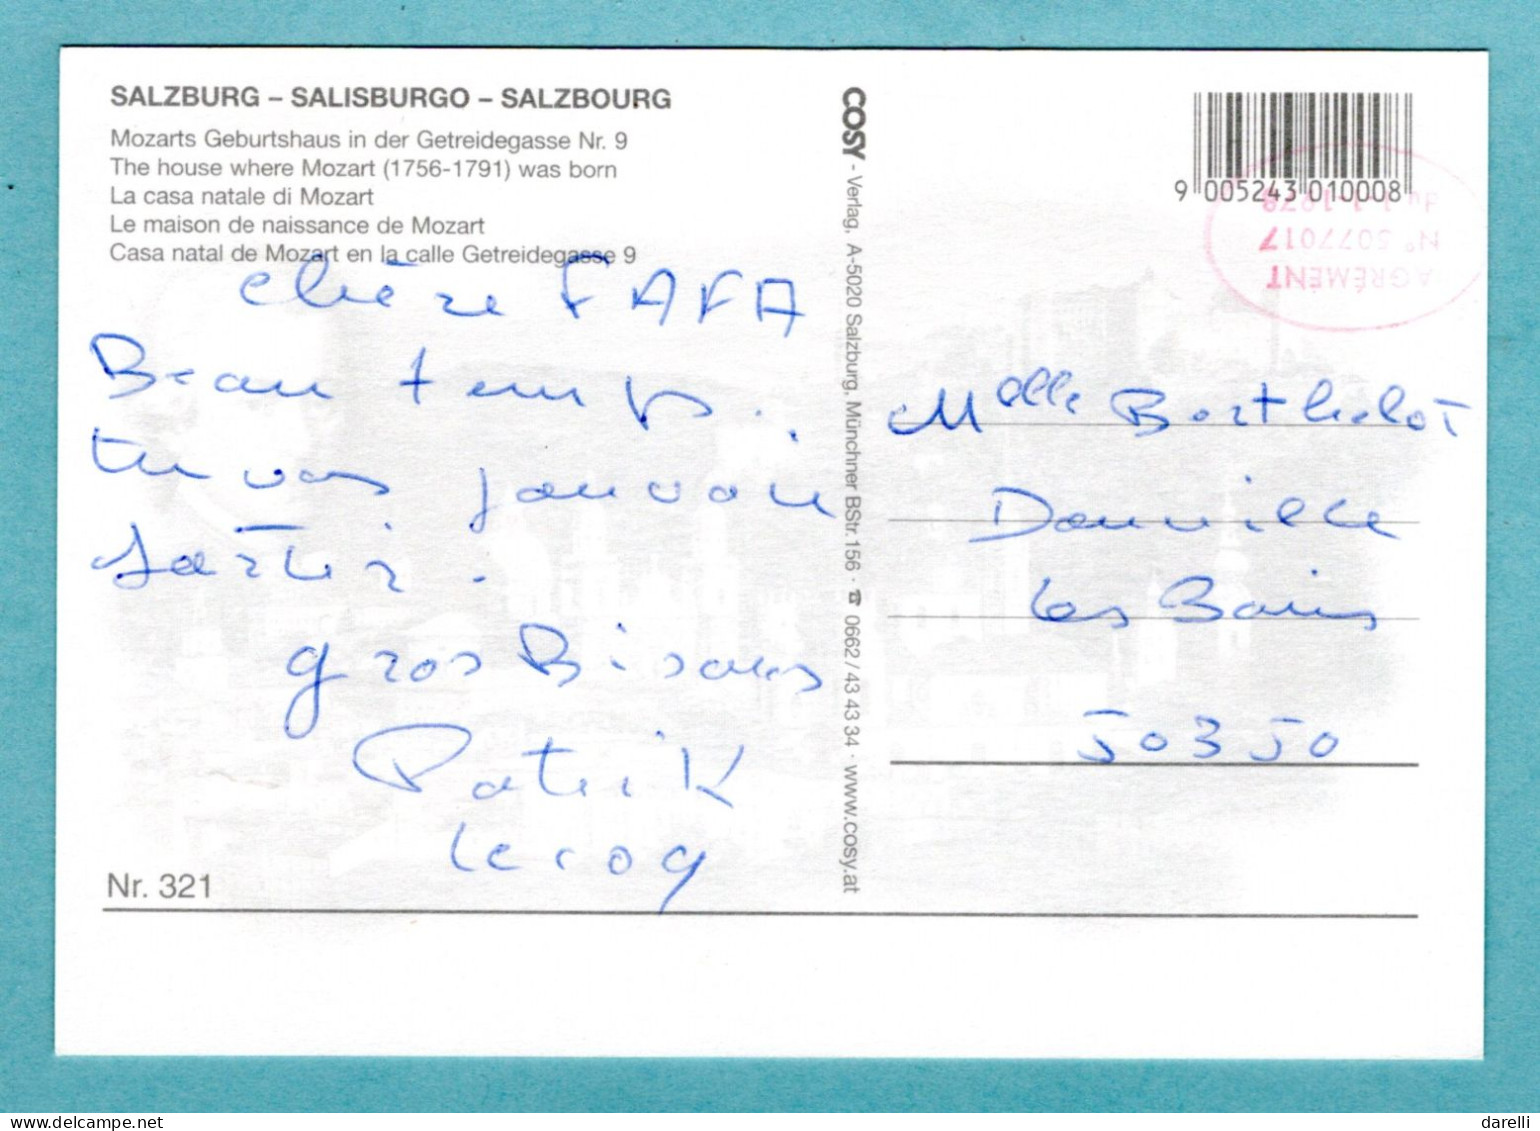 SALZBURG – SALISBURGO – SALZBOURG
Mozarts Geburtshaus in der Getreidegasse Nr. 9
The house where Mozart (1756-1791) was born
La casa natale di Mozart
Le maison de naissance de Mozart
Casa natal de Mozart en la calle Getreidegasse 9
chère FAFA
Beau temps.
tu vas pouvoir
sortir.
gros Bisous
Patrik
Leroy
Nr. 321
COSY - Verlag, A-5020 Salzburg, Münchner BStr.156 · ☎ 0662/43 43 34 · www.cosy.at
9 005243 010008
AGRÉMENT
N° 5077017
du 1-1-1978
Melle Berthelot
Donville
les Bains
50350
darelli / delcampe.net